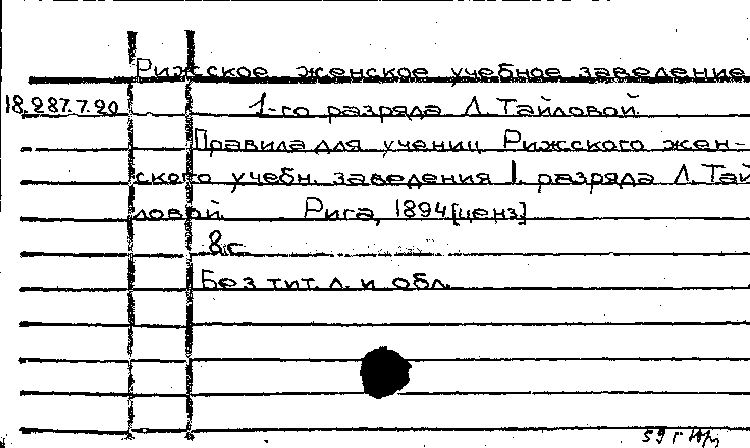 Рижское женское учебное заведение
18.287.7.20 1-го разряда Л. Тайловой
Правила для учениц Рижского жен-
ского учебн. заведения 1. разряда Л. Тай
ловой. Рига, 1894 [ценз]
8 с.
Без тит. л. и обл.
59 г